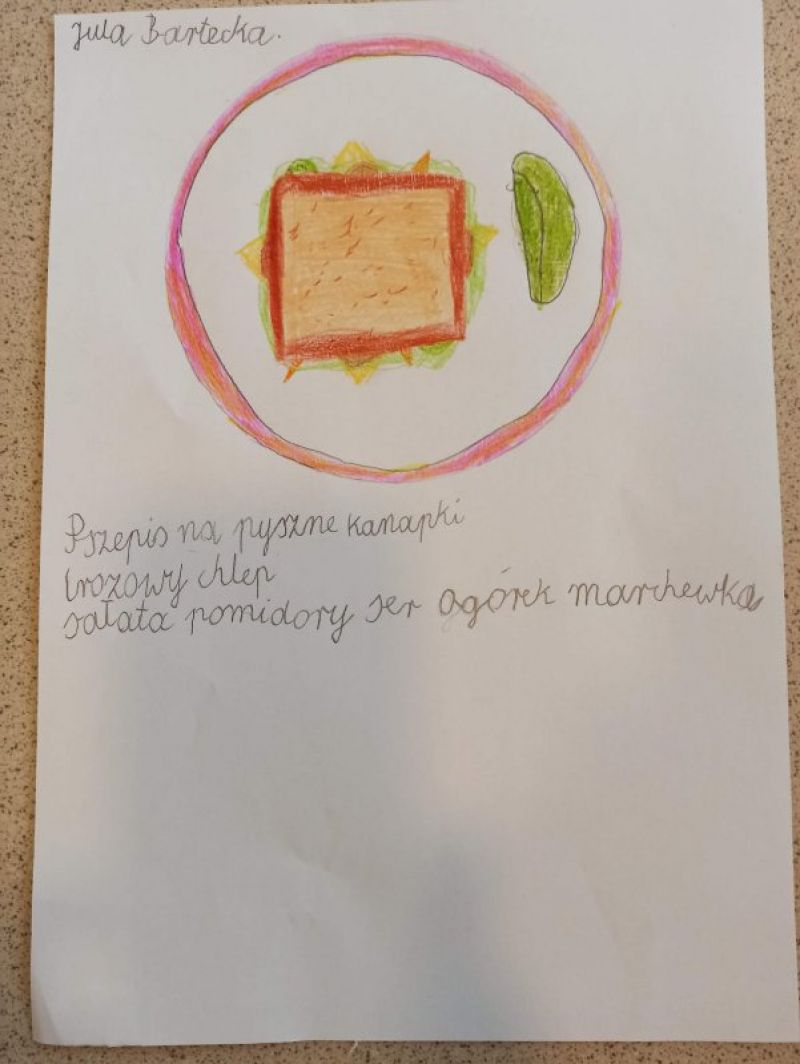 Jula Bartecka.
Pszepis na pyszne kanapki
brozowy chlep
sałata pomidory ser ogórek marchewka